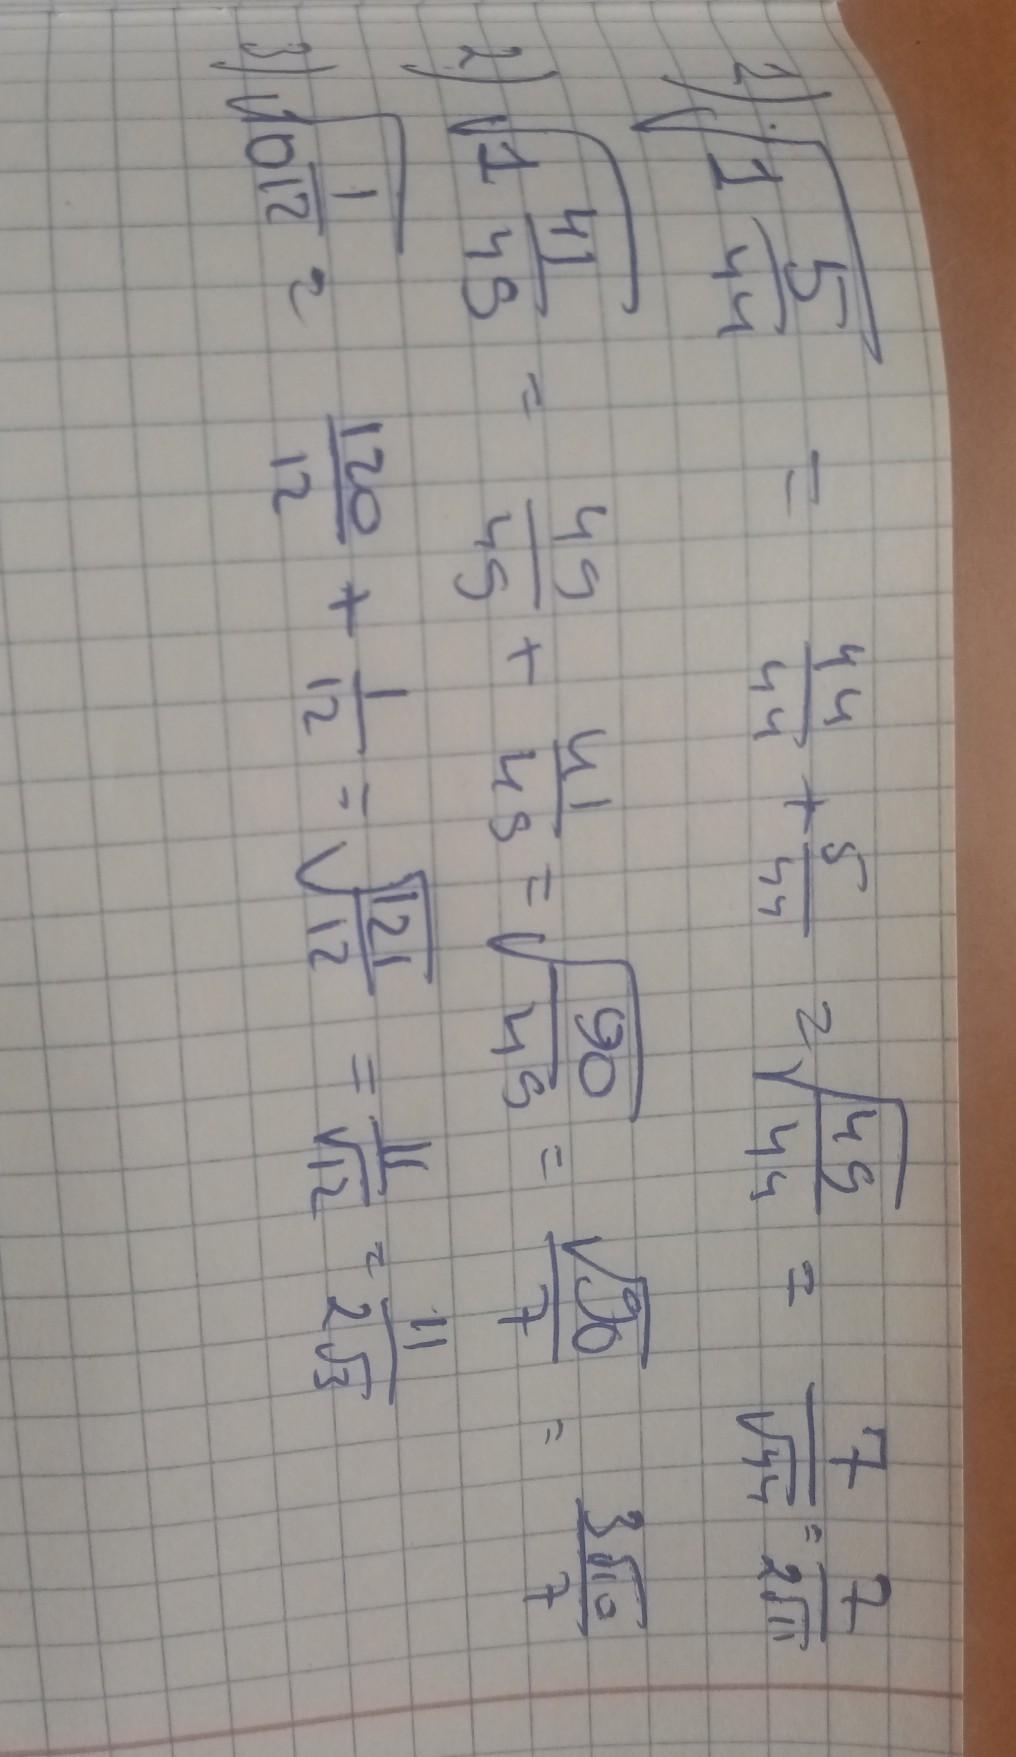 1) √(1 5/44) = 44/44 + 5/44 = √(49/44) = 7/√44 = 7/(2√11)
2) √(1 41/49) = 49/49 + 41/49 = √(90/49) = √90/7 = 3√10/7
3) √(10 1/12) = 120/12 + 1/12 = √(121/12) = 11/√12 = 11/(2√3)